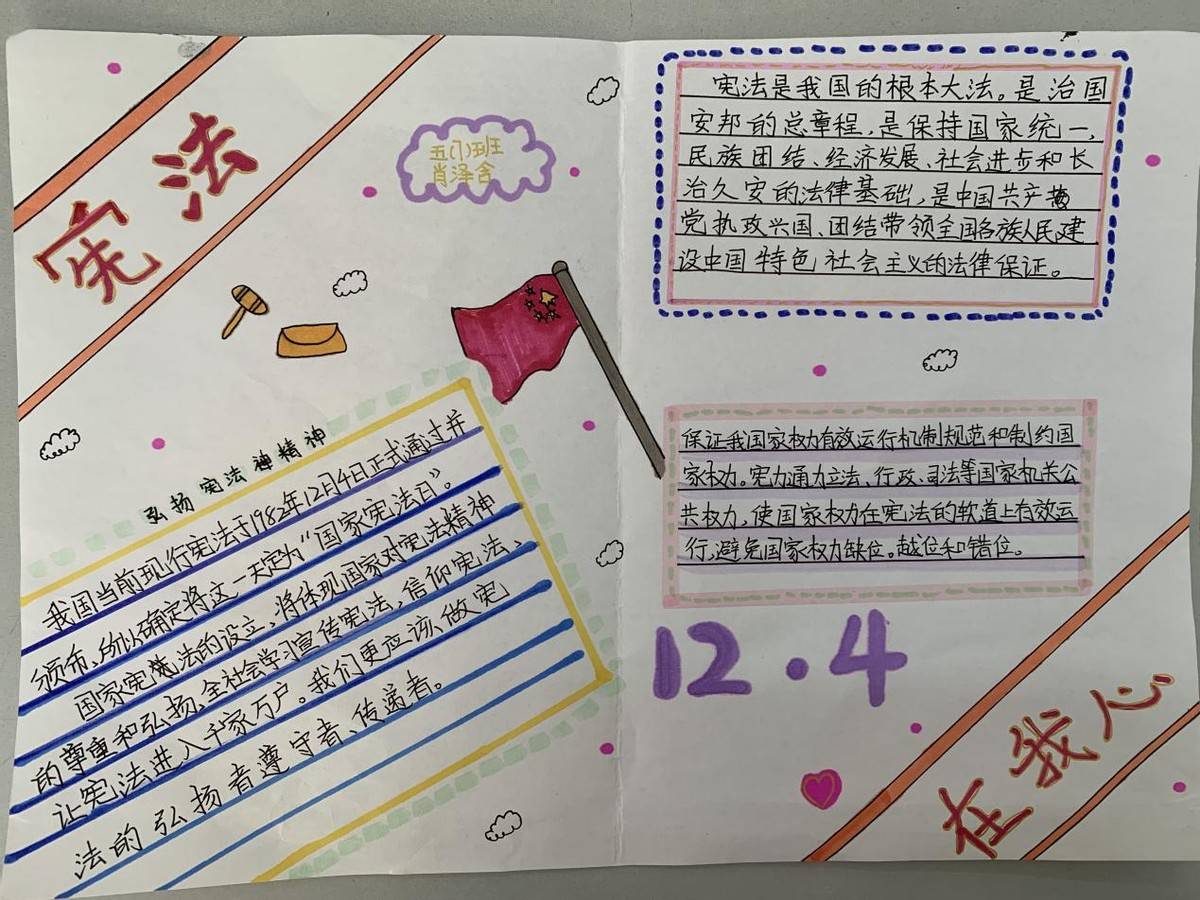 宪法
五(1)班
肖泽舍
弘扬宪法神精神
我国当前现行宪法于1982年12月4日正式通过并
颁布、所以确定将这一天定为“国家宪法日”。
国家宪法的设立,将体现国家对宪法精神
的尊重和弘扬、全社会学习宣传宪法,信仰宪法、
让宪法进入千家万户。我们更应该、做宪
法的弘扬者遵守者、传递者。
宪法是我国的根本大法。是治国
安邦的总章程,是保持国家统一,
民族团结、经济发展、社会进步和长
治久安的法律基础,是中国共产
党执政兴国、团结带领全国各族人民建
设中国特色社会主义的法律保证。
保证我国家权力有效运行机制规范和制约国
家权力。宪力通力立法、行政、司法等国家机关公
共权力,使国家权力在宪法的轨道上有效运
行,避免国家权力缺位。越位和错位。
12.4
在我心